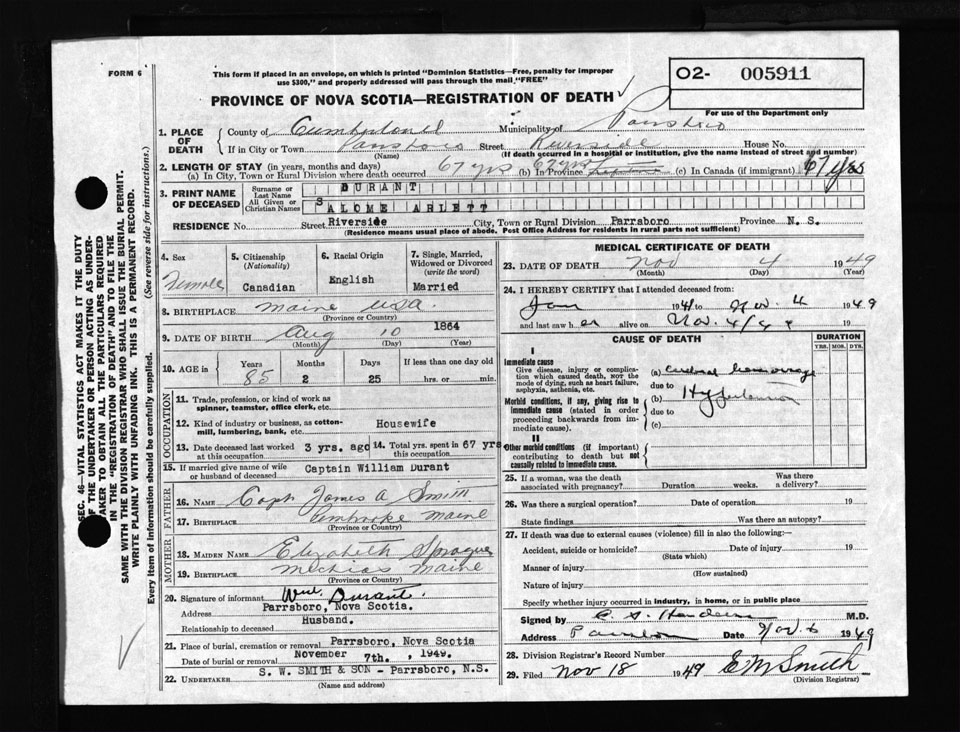 FORM 6
This form if placed in an envelope, on which is printed "Dominion Statistics—Free, penalty for improper
use $300," and properly addressed will pass through the mail "FREE"
O2- 005911
For use of the Department only
PROVINCE OF NOVA SCOTIA—REGISTRATION OF DEATH
1. PLACE OF DEATH
County of Cumberland Municipality of Parrsboro
If in City or Town Parrsboro Street Riverside House No.
(Name) (If death occurred in a hospital or institution, give the name instead of street and number)
2. LENGTH OF STAY (in years, months and days)
(a) In City, Town or Rural Division where death occurred 67 yrs (b) In Province 67 yrs (c) In Canada (if immigrant) 67 yrs
3. PRINT NAME OF DECEASED
Surname or Last Name DURANT
All Given or Christian Names SALOME ARLETT
RESIDENCE No. Street Riverside City, Town or Rural Division Parrsboro Province N. S.
(Residence means usual place of abode. Post Office Address for residents in rural parts not sufficient)
4. Sex
Female
5. Citizenship
(Nationality)
Canadian
6. Racial Origin
English
7. Single, Married, Widowed or Divorced
(write the word)
Married
8. BIRTHPLACE Maine USA
(Province or Country)
9. DATE OF BIRTH Aug 10 1864
(Month) (Day) (Year)
10. AGE in Years Months Days If less than one day old
85 2 25 hrs. or min.
OCCUPATION
11. Trade, profession, or kind of work as
spinner, teamster, office clerk, etc.
12. Kind of industry or business, as cotton-
mill, lumbering, bank, etc. Housewife
13. Date deceased last worked at this occupation 3 yrs. ago 14. Total yrs. spent in this occupation 67 yrs
15. If married give name of wife or husband of deceased Captain William Durant
FATHER
16. NAME Capt James A Smith
17. BIRTHPLACE Pembroke Maine
(Province or Country)
MOTHER
18. MAIDEN NAME Elizabeth Sprague
19. BIRTHPLACE Mechias Maine
(Province or Country)
20. Signature of informant Wm. Durant
Address Parrsboro, Nova Scotia.
Relationship to deceased Husband.
21. Place of burial, cremation or removal Parrsboro, Nova Scotia
Date of burial or removal November 7th., 1949.
22. UNDERTAKER S. W. SMITH & SON - Parrsboro, N.S.
(Name and address)
MEDICAL CERTIFICATE OF DEATH
23. DATE OF DEATH Nov 4 1949
(Month) (Day) (Year)
24. I HEREBY CERTIFY that I attended deceased from:
Jan 1941 to Nov. 4 1949
and last saw her alive on Nov. 4/49 19
CAUSE OF DEATH
DURATION
YRS. MOS. DYS.
I
Immediate cause
Give disease, injury or complica-
tion which caused death, NOT the
mode of dying, such as heart failure,
asphyxia, asthenia, etc.
(a) cerebral hemorrage
due to
Morbid conditions, if any, giving rise to
immediate cause (stated in order
proceeding backwards from im-
mediate cause).
(b) Hypertension
due to
(c)
II
Other morbid conditions (if important)
contributing to death but not
causally related to immediate cause.
25. If a woman, was the death
associated with pregnancy? Duration weeks. Was there a delivery?
26. Was there a surgical operation? Date of operation 19
State findings Was there an autopsy?
27. If death was due to external causes (violence) fill in also the following:—
Accident, suicide or homicide? Date of injury 19
(State which)
Manner of injury
(How sustained)
Nature of injury
Specify whether injury occurred in industry, in home, or in public place
Signed by M.D.
Address Date Nov. 6 1949
28. Division Registrar's Record Number
29. Filed Nov 18 1949 E M Smith
(Division Registrar)
SEC. 46 VITAL STATISTICS ACT MAKES IT THE DUTY
OF THE UNDERTAKER OR PERSON ACTING AS UNDER-
TAKER TO OBTAIN ALL THE PARTICULARS REQUIRED
IN THE "REGISTRATION OF DEATH" AND TO FILE THE
SAME WITH THE DIVISION REGISTRAR WHO SHALL ISSUE THE BURIAL PERMIT.
WRITE PLAINLY WITH UNFADING INK. THIS IS A PERMANENT RECORD.
Every item of information should be carefully supplied. (See reverse side for instructions.)